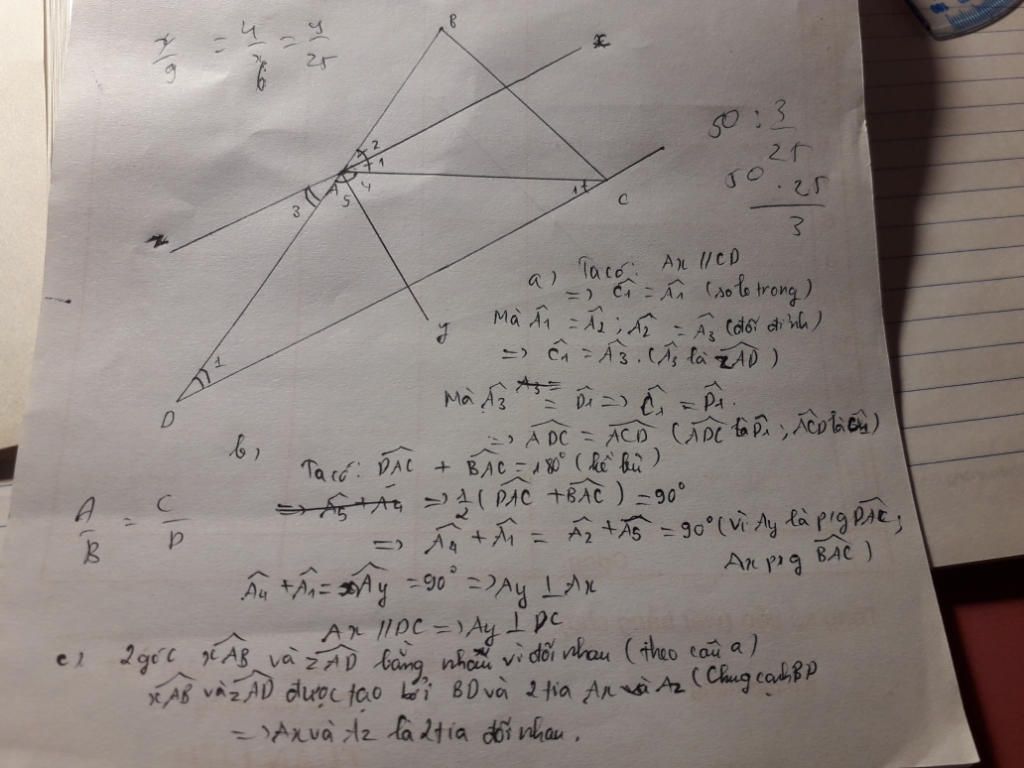 x/9 = 4/x = y/25
6
B
x
2
1
4
5
3
z
1
C
y
1
D
50 : 3/25
50 . 25
3
a) Ta có: Ax // CD
=> Ĉ1 = Â1 (so le trong)
Mà Â1 = Â2 ; Â2 = Â3 (đối đỉnh)
=> Ĉ1 = Â3. (Â3 là zAD)
Mà Â3 = D̂1 => Ĉ1 = D̂1.
=> ADC = ACD (ADC là D̂1 ; ACD là Ĉ1)
b,
Ta có: DAC + BAC = 180° (kề bù)
=> Â5 + Â4 => 1/2 (DAC + BAC) = 90°
A/B = C/D
=> Â4 + Â1 = Â2 + Â5 = 90° (vì Ay là p/g DAC;
Ax p/g BAC)
Â4 + Â1 = xAy = 90° => Ay ⊥ Ax
Ax // DC => Ay ⊥ DC
c, 2 góc xAB và zAD bằng nhau vì đối nhau (theo câu a)
xAB và zAD được tạo bởi BD và 2 tia Ax và Az (Chung cạnh BD
=> Ax và Az là 2 tia đối nhau.